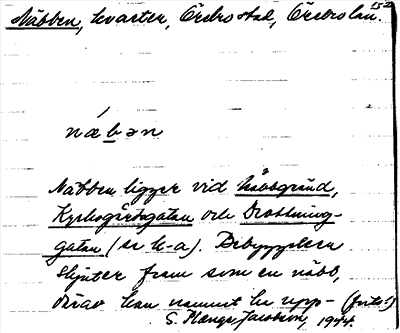 Näbben, kvarter, Örebro stad, Örebro län.
næbən
Näbben ligger vid
Kyrkogårdsgatan och Drottning-
gatan (se k-a). Bebyggelsen
skjuter fram som en näbb,
därav kan namnet ha upp- (forts.)
S. Hænge Jacobson, 1944.